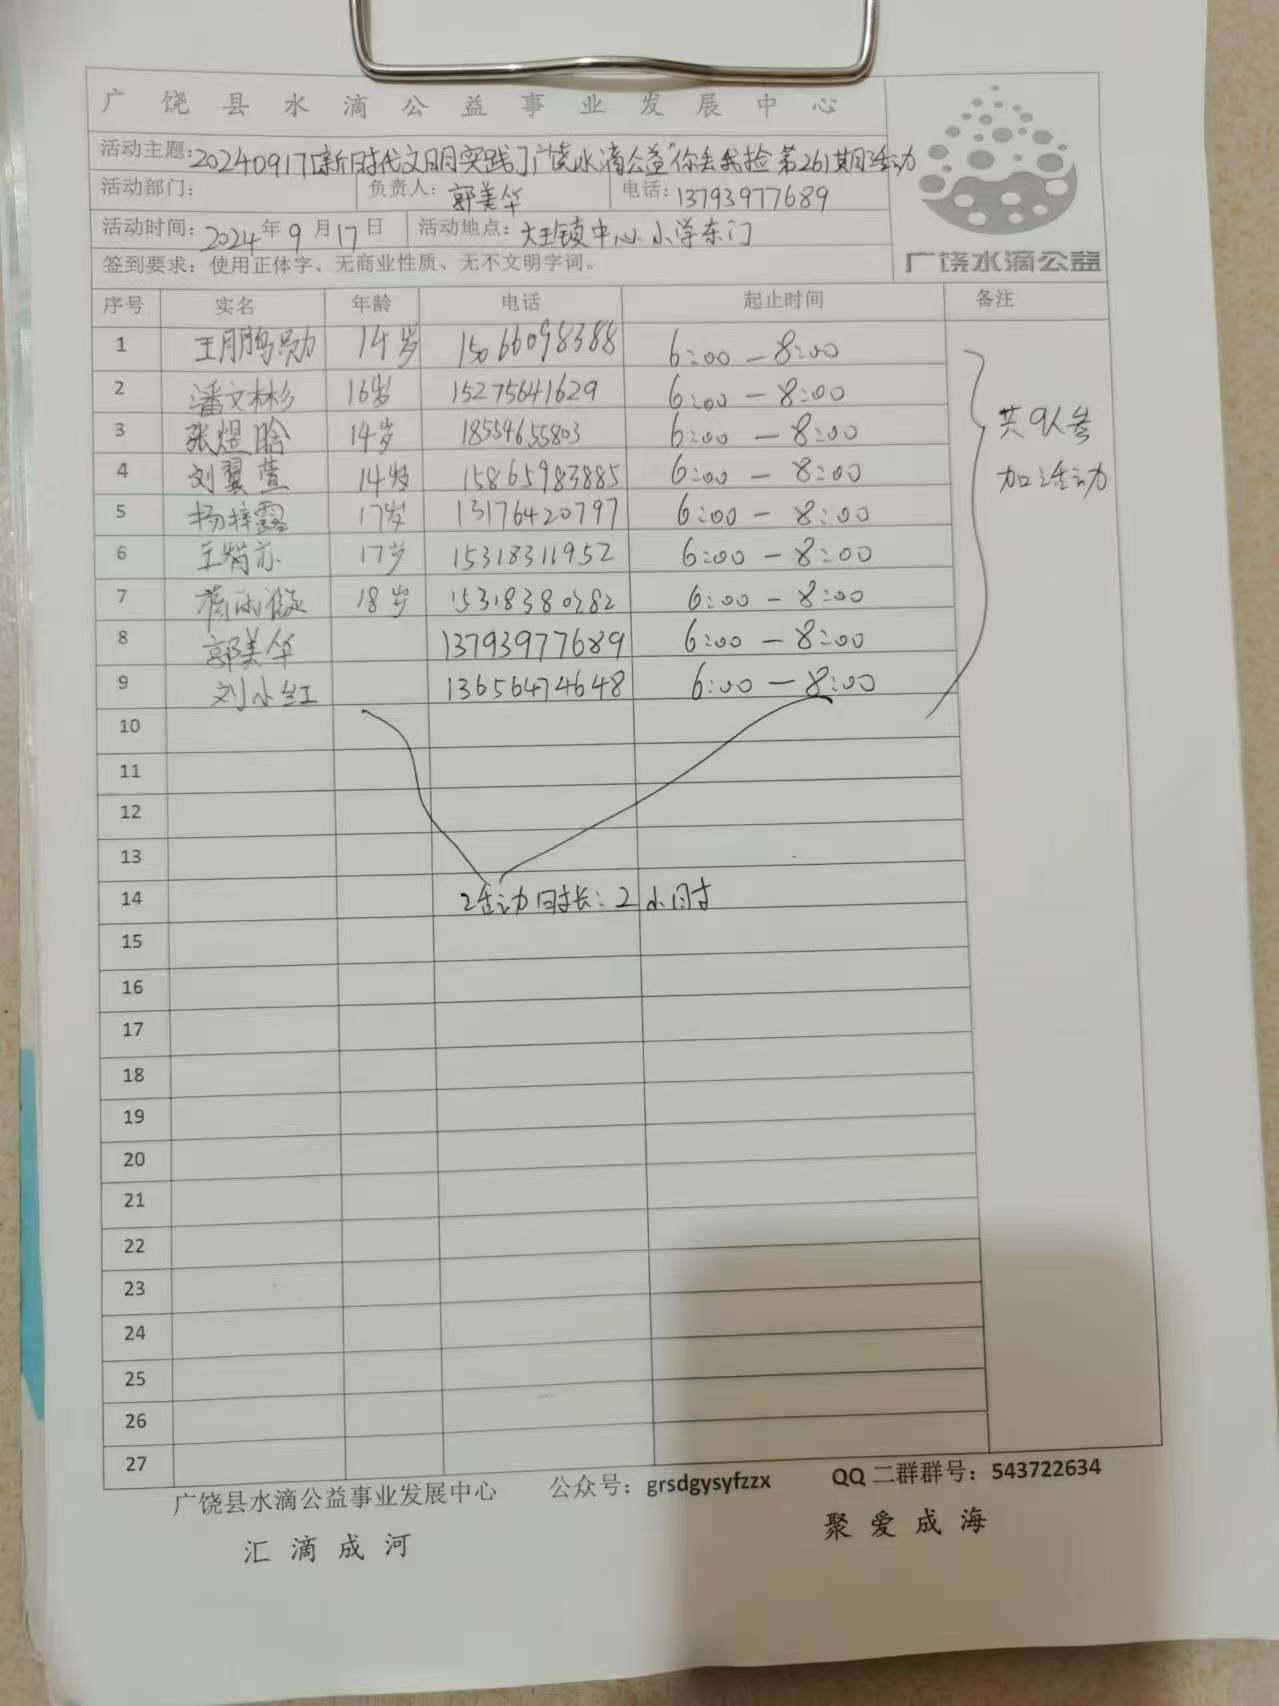 广饶县水滴公益事业发展中心
活动主题:20240917[新时代文明实践]广饶水滴公益"你丢我捡第261期活动
活动部门: 负责人:郭美华 电话:13793977689
活动时间:2024年9月17日 活动地点:大王镇中心小学东门
广饶水滴公益
签到要求:使用正体字、无商业性质、无不文明字词。
序号 实名 年龄 电话 起止时间 备注
1 王鹏勋 14岁 15066098388 6:00-8:00
2 潘文彬 16岁 15275641629 6:00-8:00
3 张煜晗 14岁 18554655803 6:00-8:00
共9人参
4 刘翼萱 14岁 15865983885 6:00-8:00
加活动
5 杨梓露 17岁 13176420797 6:00-8:00
6 王 亦 17岁 15318311952 6:00-8:00
7 18岁 15318380282 6:00-8:00
8 郭美华 13793977689 6:00-8:00
9 刘小红 13656474648 6:00-8:00
10
11
12
13
14 活动时长:2小时
15
16
17
18
19
20
21
22
23
24
25
26
27
广饶县水滴公益事业发展中心 公众号:grsdgysyfzzx QQ二群群号:543722634
汇滴成河 聚爱成海